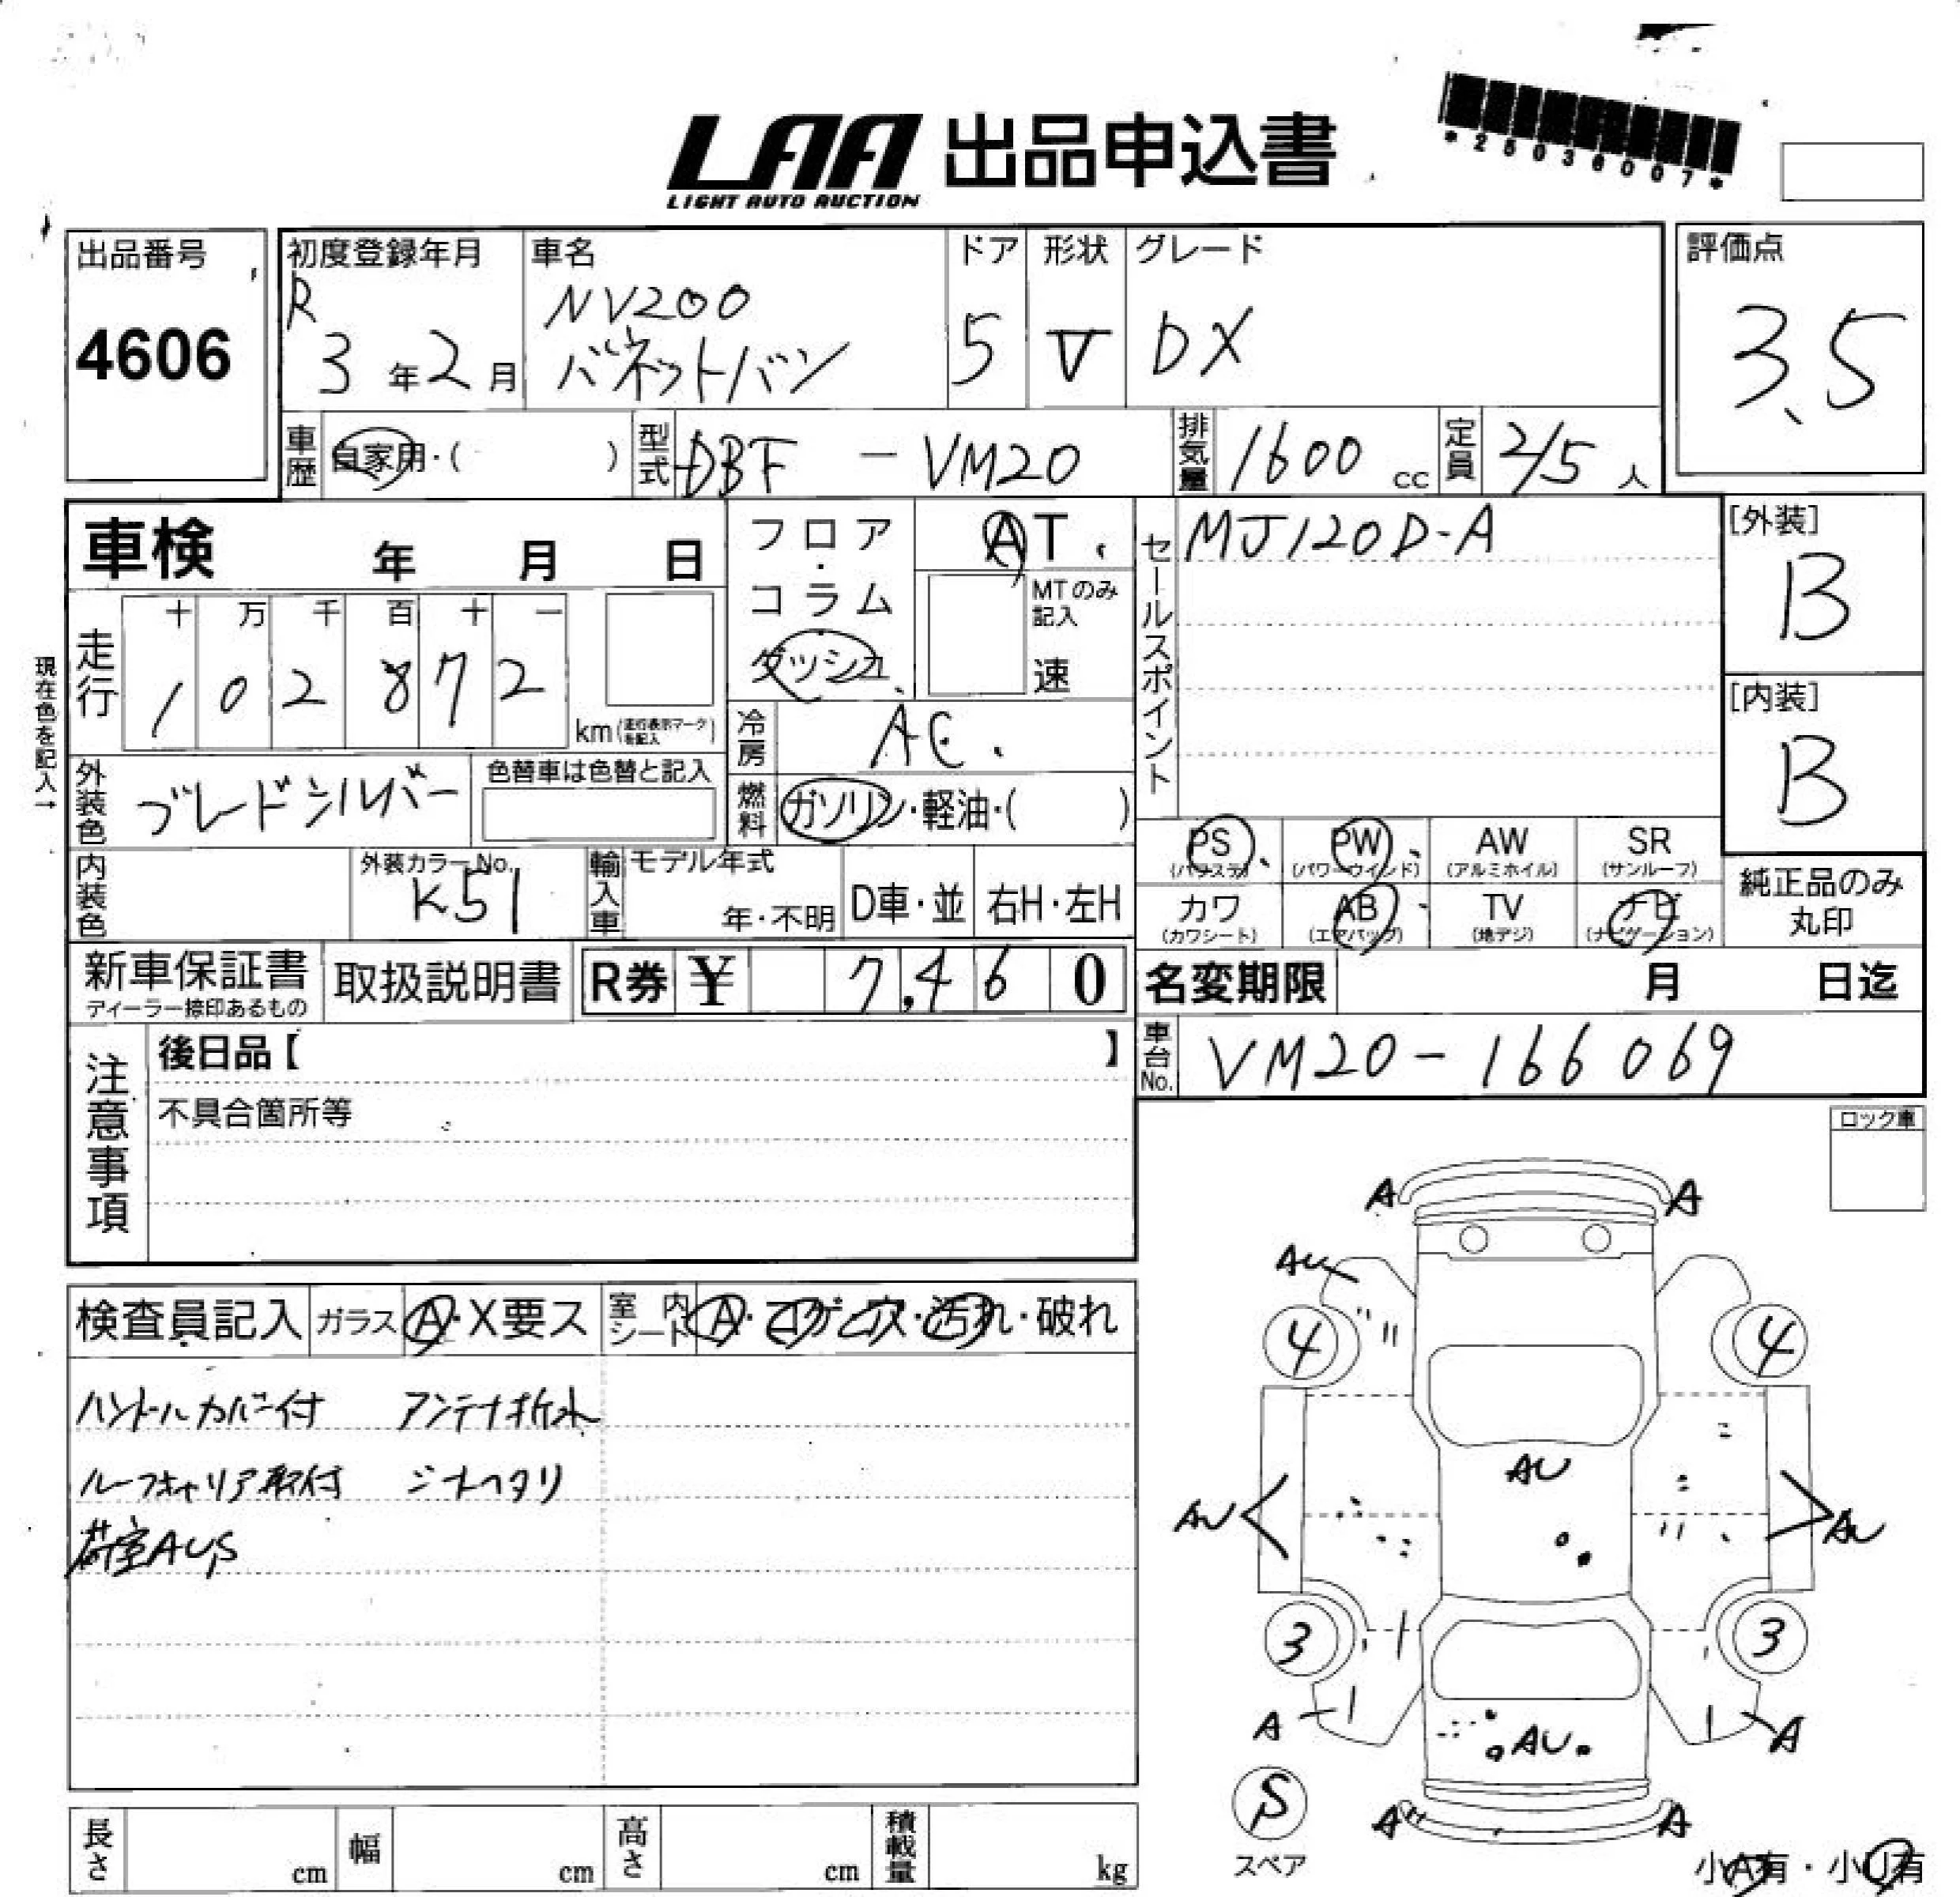 *25036007*
LAA 出品申込書
LIGHT AUTO AUCTION
出品番号
4606
初度登録年月
R
3年2月
車名
NV200
バネットバン
ドア
5
形状
V
グレード
DX
評価点
3.5
車歴
自家用・( )
型式
DBF - VM20
排気量
1600 cc
定員
2/5人
車検 年 月 日
フロア・コラム
ダッシュ
AT
MTのみ記入
速
セールスポイント
MJ120D-A
[外装]
B
[内装]
B
現在色を記入→
走行
十 万 千 百 十 一
1 0 2 8 7 2
km (走行表示マークを記入)
冷房
AC
燃料
ガソリン・軽油・( )
外装色
ブレードシルバー
色替車は色替と記入
内装色
外装カラーNo.
K51
輸入車
モデル年式
年・不明
D車・並
右H・左H
PS
(パワステ)
PW
(パワーウインド)
AW
(アルミホイル)
SR
(サンルーフ)
カワ
(カワシート)
AB
(エアバッグ)
TV
(地デジ)
ナビ
(ナビゲーション)
純正品のみ
丸印
新車保証書
ディーラー捺印あるもの
取扱説明書
R券 ¥ 7,460
名変期限 月 日迄
車台No.
VM20-166069
注意事項
後日品【 】
不具合箇所等
ロック車
検査員記入
ガラス A・X要ス
室内シート A・コゲ・穴・汚れ・破れ
ハンドルカバー付 アンテナ折れ
ルーフキャリア取付 シートヘタリ
荷室AU,S
A A
AU
4 4
AU
AU AU
3 3
A A
AU
S
スペア
A A
小A有・小U有
長さ cm
幅 cm
高さ cm
積載量 kg